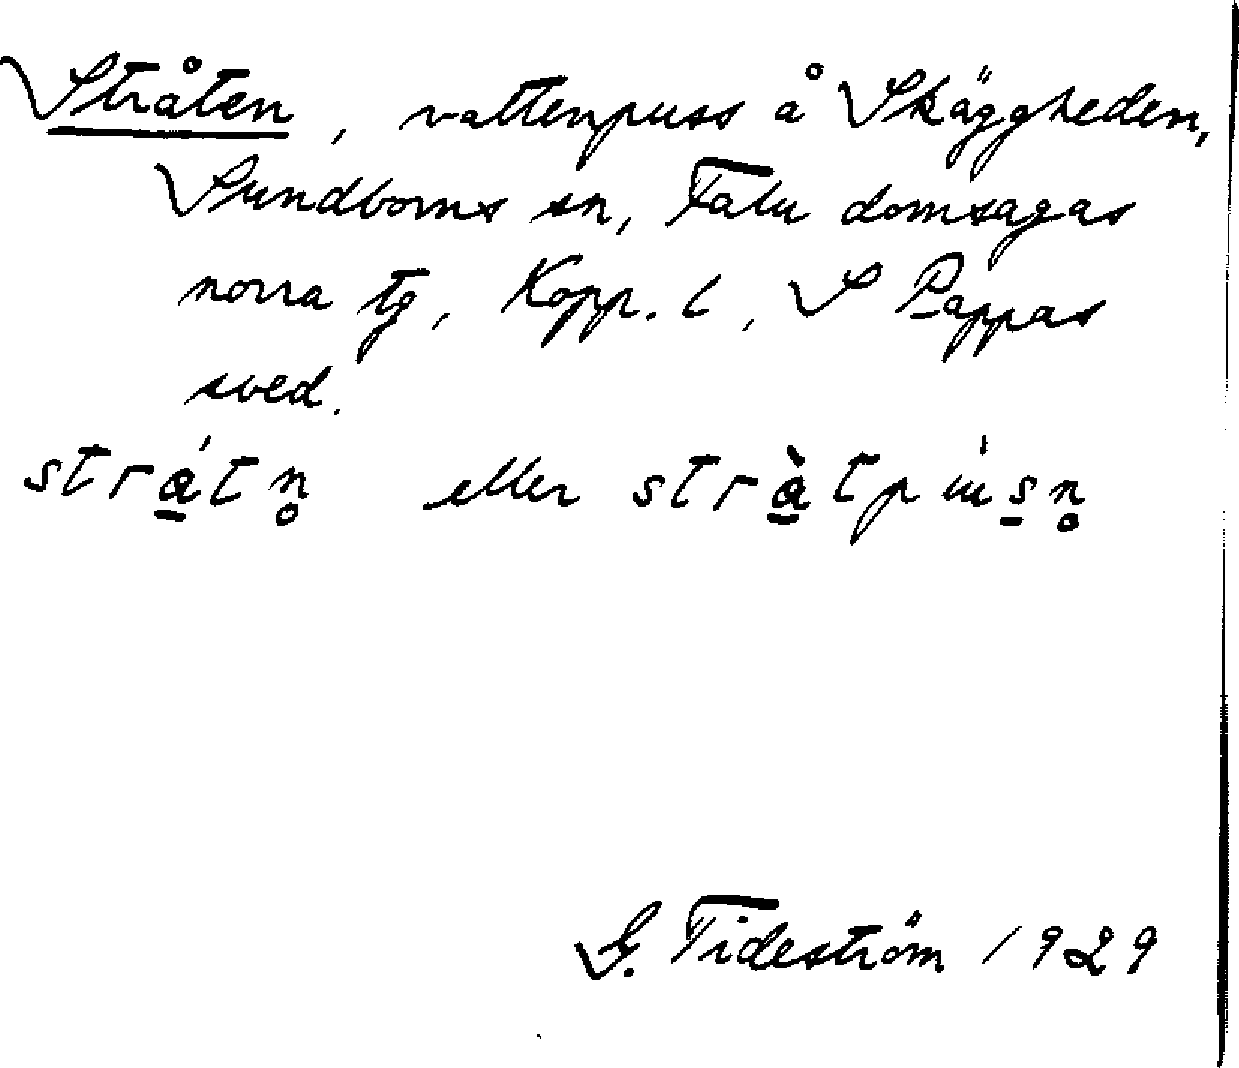 Stråten, vattenpuss å Skäggheden,
Sundborns sn, Falu domsagas
norra tg, Kopp. l, S Pappas
sved.
strá̲tn̥ eller strà̲tpùs̲n̥
G. Tideström 1929